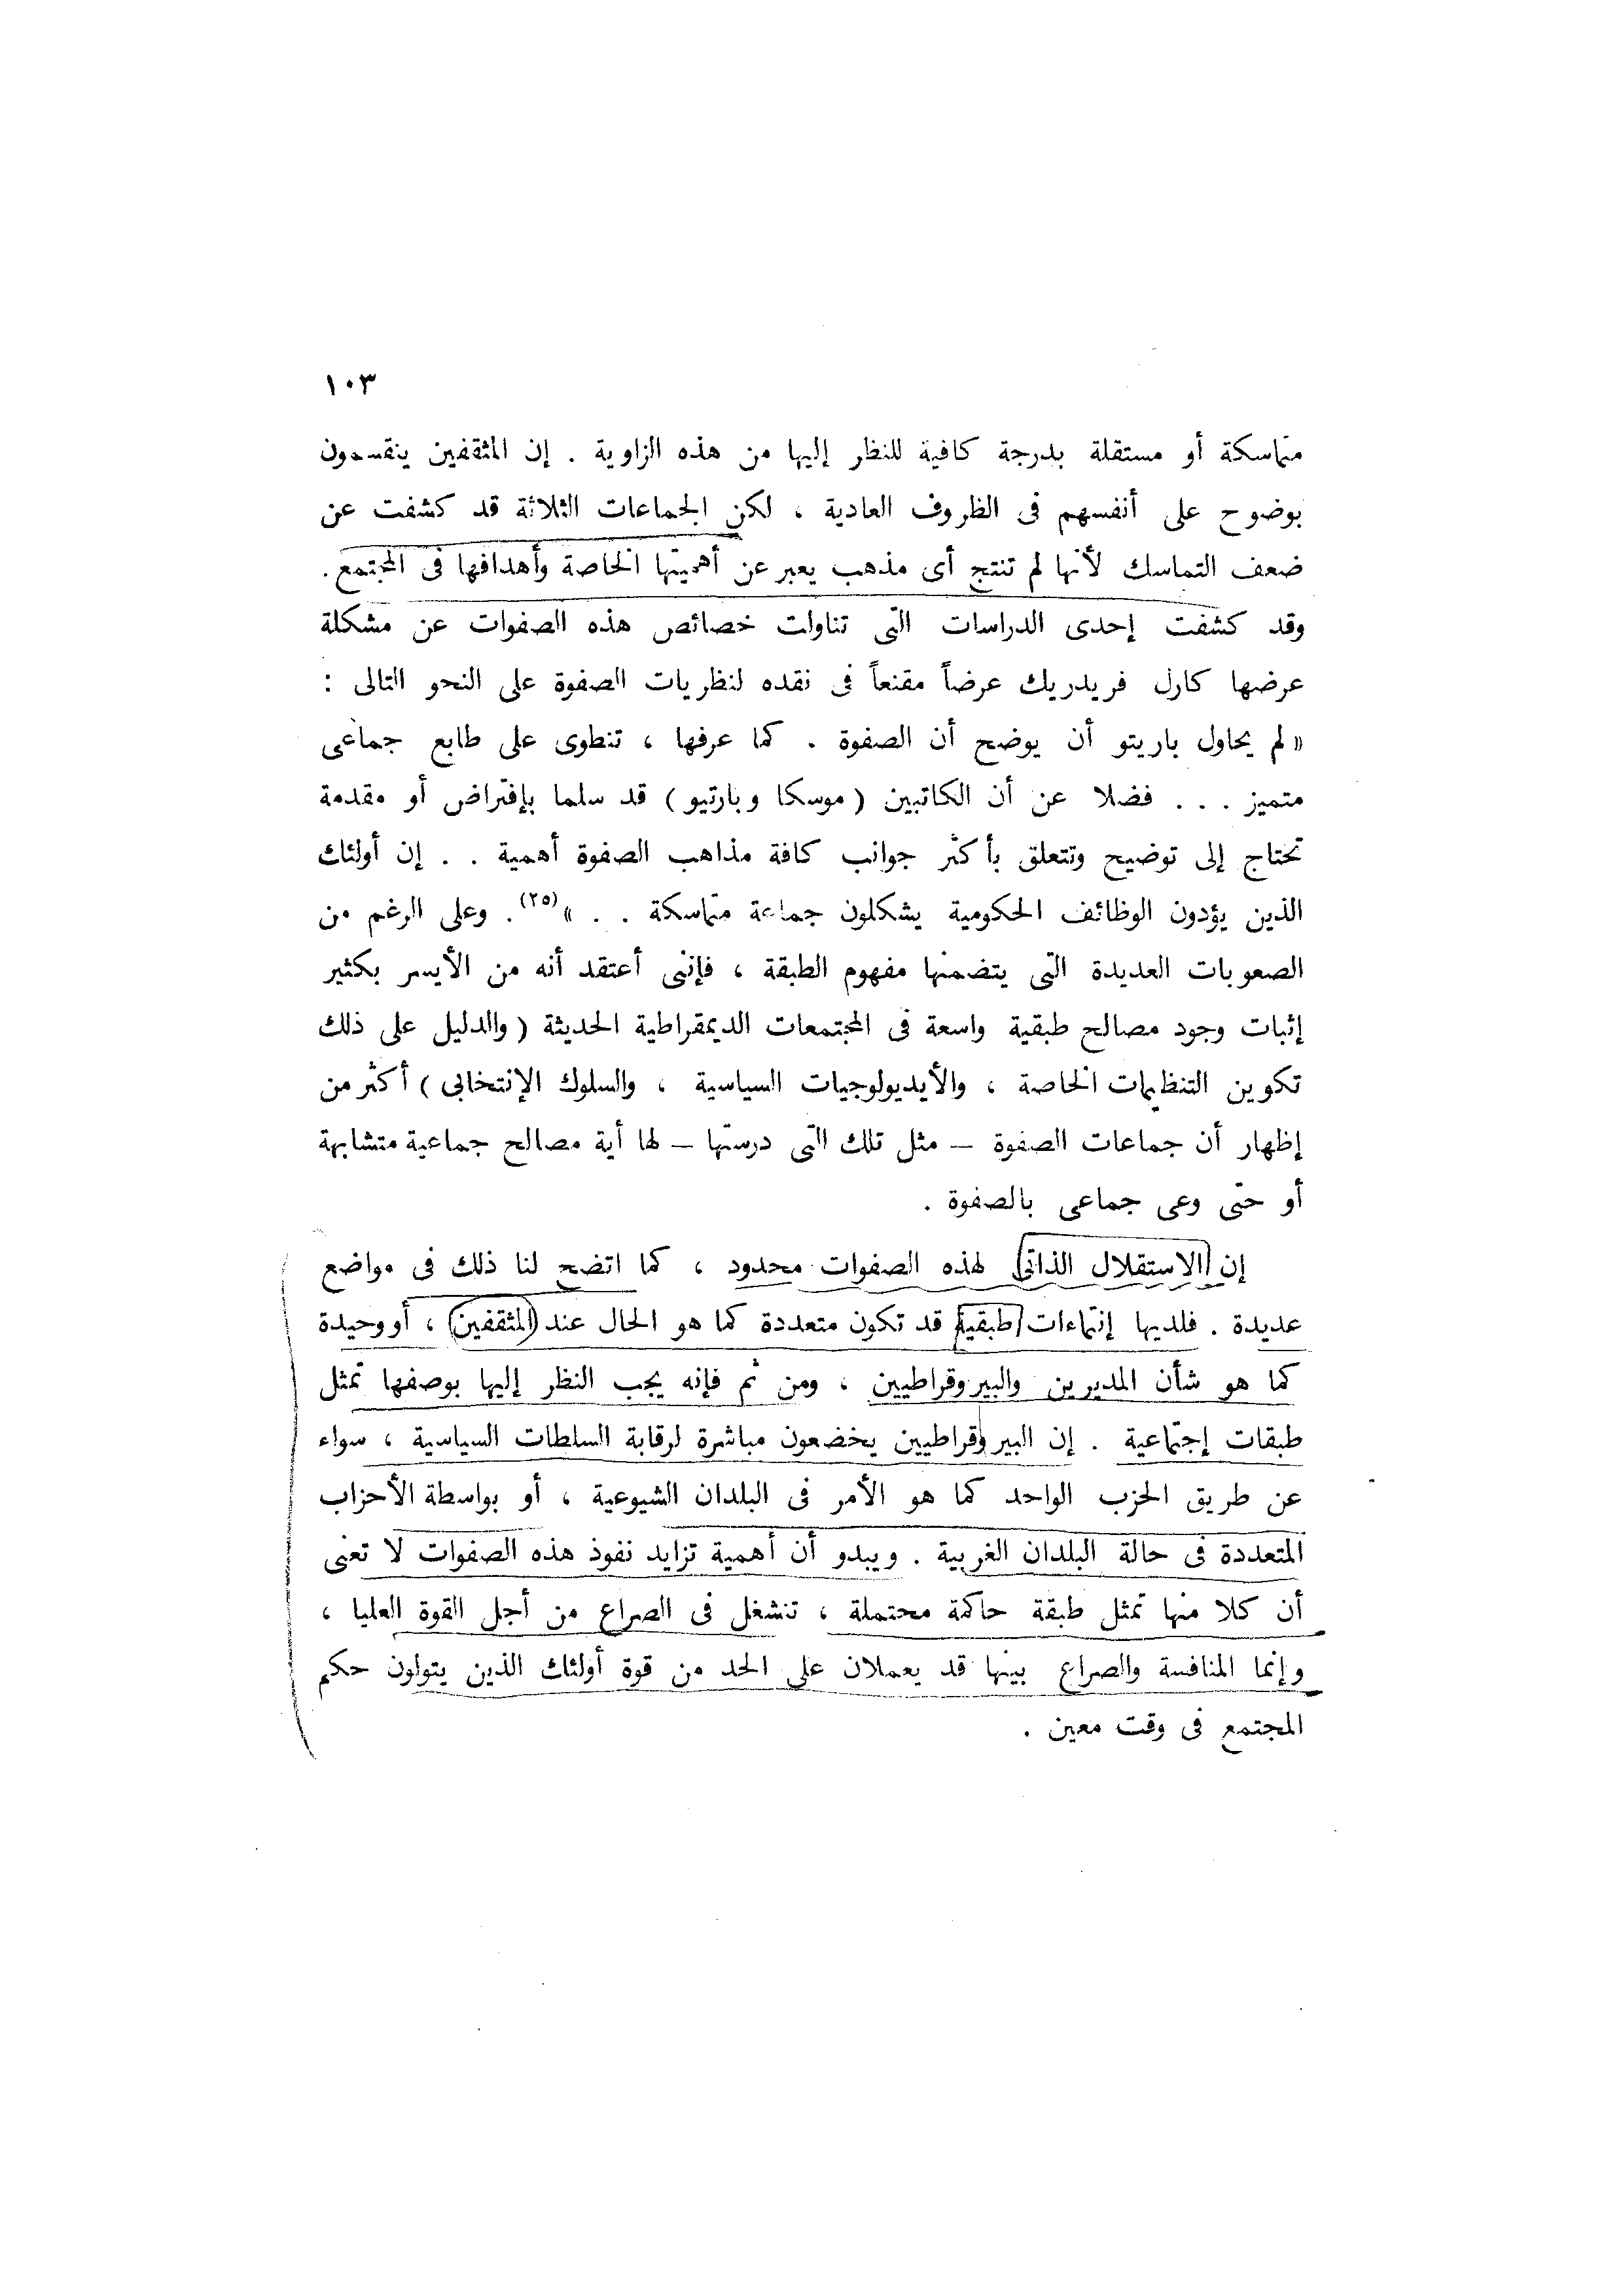 ١٠٣
متماسكة أو مستقلة بدرجة كافية للنظر إليها من هذه الزاوية . إن المثقفين ينقسمون
بوضوح على أنفسهم فى الظروف العادية ، لكن الجماعات الثلاثة قد كشفت عن
ضعف التماسك لأنها لم تنتج أى مذهب يعبر عن أهميتها الخاصة وأهدافها فى المجتمع .
وقد كشفت إحدى الدراسات التى تناولت خصائص هذه الصفوات عن مشكلة
عرضها كارل فريدريك عرضاً مقنعاً فى نقده لنظريات الصفوة على النحو التالى :
« لم يحاول باريتو أن يوضح أن الصفوة . كما عرفها ، تنطوى على طابع جماعى
متميز . . . فضلا عن أن الكاتبين ( موسكا وبارتيو ) قد سلما بإفتراض أو مقدمة
تحتاج إلى توضيح وتتعلق بأكثر جوانب كافة مذاهب الصفوة أهمية . . إن أولئك
الذين يؤدون الوظائف الحكومية يشكلون جماعة متماسكة . . »(٢٥). وعلى الرغم من
الصعوبات العديدة التى يتضمنها مفهوم الطبقة ، فإننى أعتقد أنه من الأيسر بكثير
إثبات وجود مصالح طبقية واسعة فى المجتمعات الديمقراطية الحديثة ( والدليل على ذلك
تكوين التنظيمات الخاصة ، والأيديولوجيات السياسية ، والسلوك الإنتخابى ) أكثر من
إظهار أن جماعات الصفوة – مثل تلك التى درستها – لها أية مصالح جماعية متشابهة
أو حتى وعى جماعى بالصفوة .
إن الاستقلال الذاتى لهذه الصفوات محدود ، كما اتضح لنا ذلك فى مواضع
عديدة . فلديها إنتماءات طبقية قد تكون متعددة كما هو الحال عند المثقفين ، أو وحيدة
كما هو شأن المديرين والبيروقراطيين ، ومن ثم فإنه يجب النظر إليها بوصفها تمثل
طبقات إجتماعية . إن البيروقراطيين يخضعون مباشرة لرقابة السلطات السياسية ، سواء
عن طريق الحزب الواحد كما هو الأمر فى البلدان الشيوعية ، أو بواسطة الأحزاب
المتعددة فى حالة البلدان الغربية . ويبدو أن أهمية تزايد نفوذ هذه الصفوات لا تعنى
أن كلا منها تمثل طبقة حاكمة محتملة ، تنشغل فى الصراع من أجل القوة العليا ،
وإنما المنافسة والصراع بينها قد يعملان على الحد من قوة أولئك الذين يتولون حكم
المجتمع فى وقت معين .